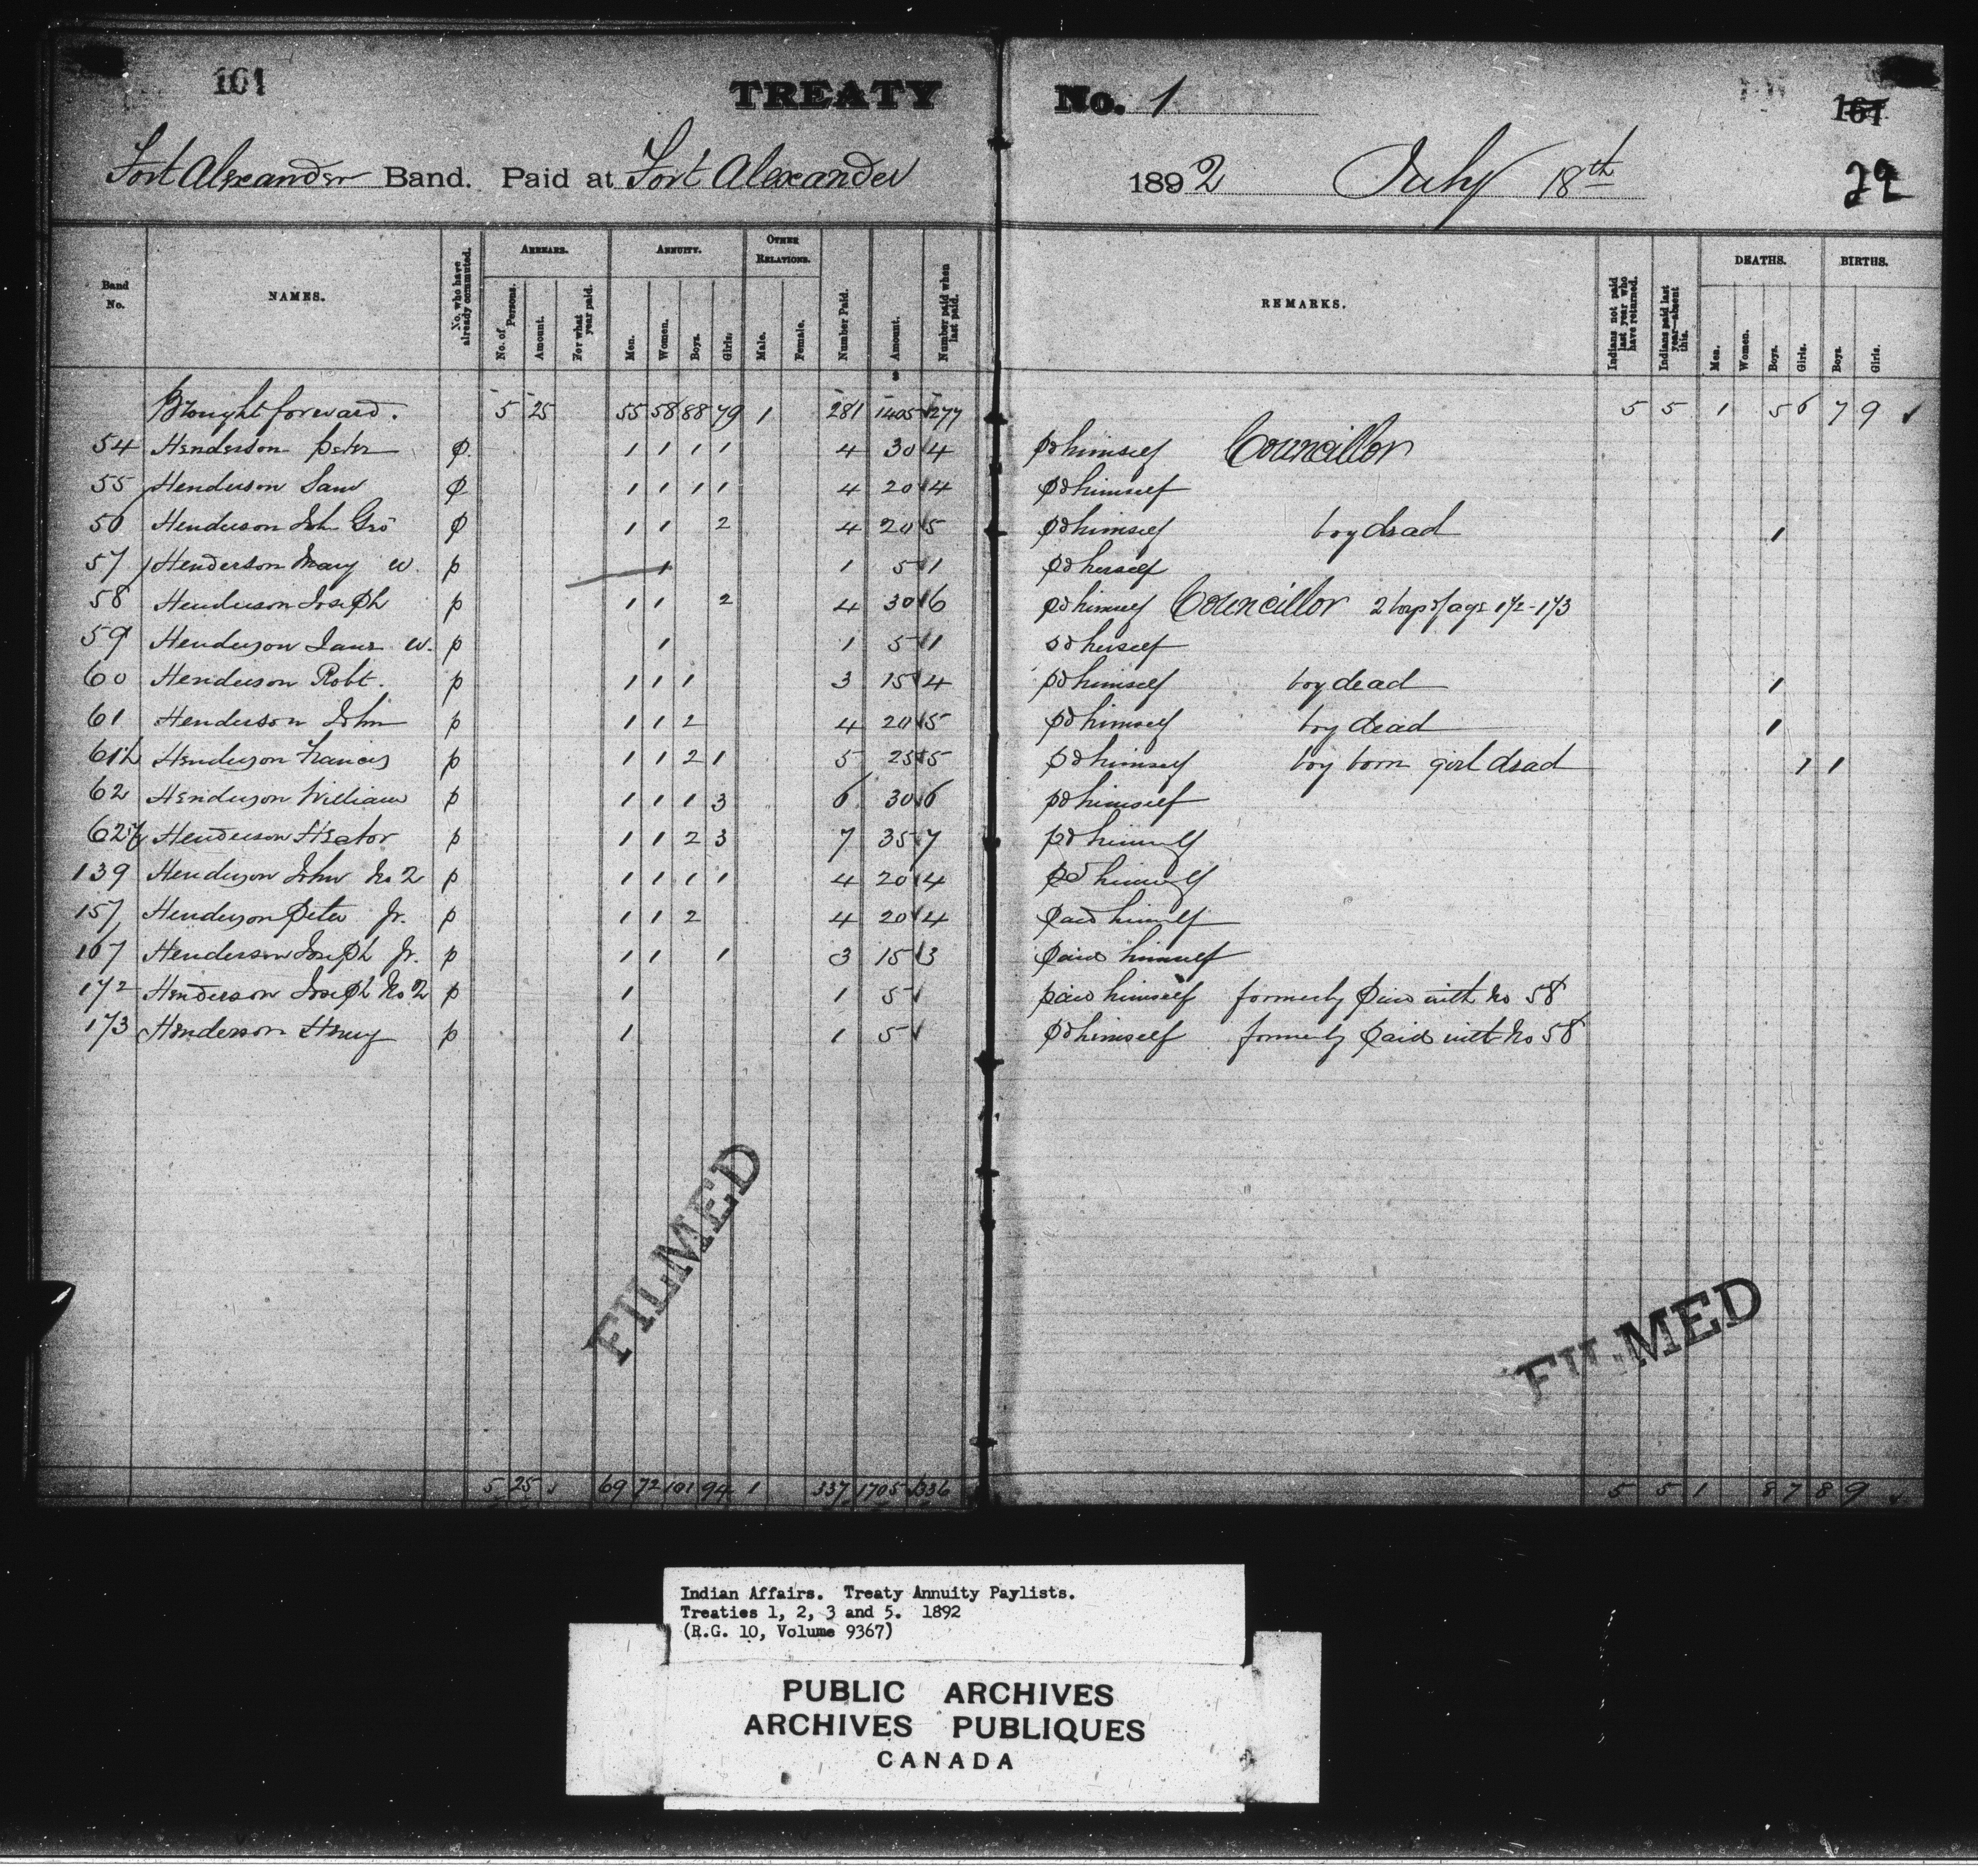 161 TREATY No. 1 161
Fort Alexander Band. Paid at Fort Alexander 1892 July 18th 22
Band No. NAMES. No. who have already commuted. ARREARS. No. of Persons. Amount. For what year paid. ANNUITY. Men. Women. Boys. Girls. OTHER RELATIONS. Male. Female. Number Paid. Amount. Number paid when last paid. REMARKS. Indians not paid last year who have returned. Indians paid last year—absent this. DEATHS. Men. Women. Boys. Girls. BIRTHS. Boys. Girls.
Brought forward. 5 25 55 58 88 79 1 281 1405 277 5 5 1 5 6 7 9
54 Henderson Peter p 1 1 1 1 4 30 4 pd himself Councillor
55 Henderson Sam p 1 1 1 1 4 20 4 pd himself
56 Henderson Jn Geo p 1 1 2 4 20 5 pd himself boy dead 1
57 Henderson Mary w. p 1 1 5 1 pd herself
58 Henderson Joseph p 1 1 2 4 30 6 pd himself Councillor 2 boys of age 172-173
59 Henderson Jane w. p 1 1 5 1 pd herself
60 Henderson Robt. p 1 1 1 3 15 4 pd himself boy dead 1
61 Henderson John p 1 1 2 4 20 5 pd himself boy dead 1
61½ Henderson Francis p 1 1 2 1 5 25 5 pd himself boy born girl dead 1 1
62 Henderson William p 1 1 1 3 6 30 6 pd himself
62½ Henderson Hector p 1 1 2 3 7 35 7 pd himself
139 Henderson John No 2 p 1 1 1 1 4 20 4 pd himself
157 Henderson Peter Jr. p 1 1 2 4 20 4 paid himself
167 Henderson Joseph Jr. p 1 1 1 3 15 3 paid himself
172 Henderson Joseph No 2 p 1 1 5 paid himself formerly paid with No 58
173 Henderson Henry p 1 1 5 pd himself formerly paid with No 58
FILMED
FILMED
5 25 69 72 101 94 1 337 1705 336 5 5 1 8 7 8 9
Indian Affairs. Treaty Annuity Paylists.
Treaties 1, 2, 3 and 5. 1892
(R.G. 10, Volume 9367)
PUBLIC ARCHIVES
ARCHIVES PUBLIQUES
CANADA